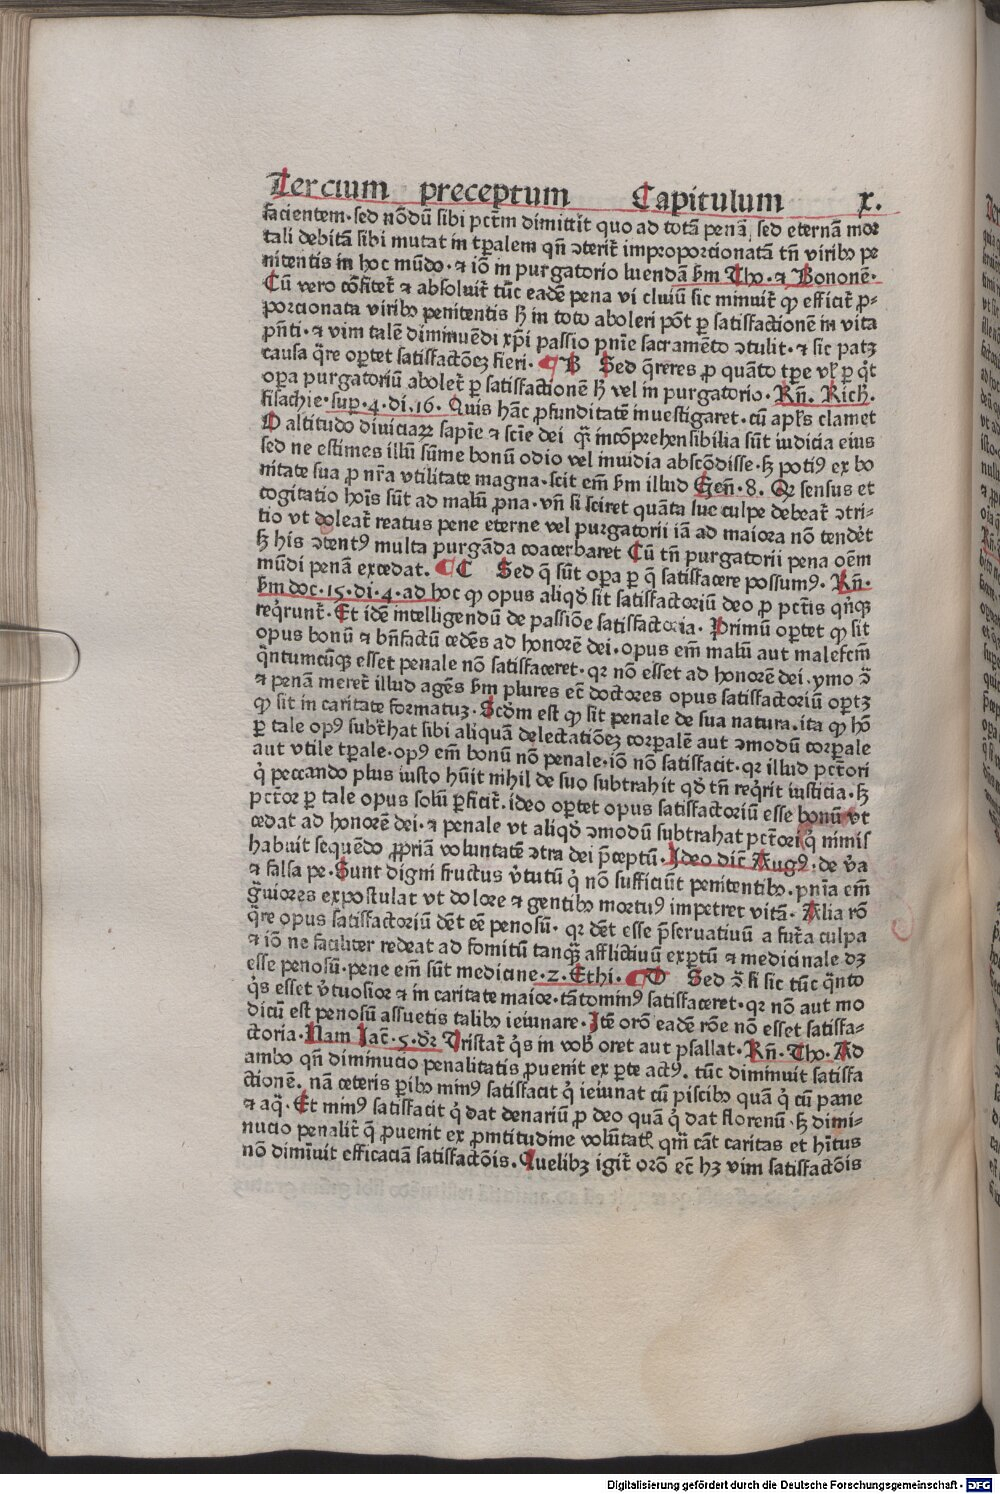 Tercium preceptum Capitulum x.
facientem· sed nōdū sibi pctm̄ dimittit̄ quo ad totā penā, sed eternā mor
tali debitā sibi mutat in tp̄alem qn̄ ↄterit̄ improporcionatā tn̄ viribꝰ pe
nitentis in hoc mūdo· ⁊ iō in purgatorio luendā ẜm Tho· ⁊ Bononē·
Cū vero cōfitet̄ ⁊ absoluit̄ tūc eadē pena vi clauiū sic minuit̄ ꝙ efficit̄ ꝓ-
porcionata viribꝰ penitentis ẜ in toto aboleri pōt ꝑ satisfactionē in vita
pn̄ti· ⁊ vim talē diminuēdi xp̄i passio pnīe sacramēto ↄtulit· ⁊ sic patꝫ
causa q̄re oꝑtet satisfactōeꝫ fieri· ¶ B Sed q̄reres ꝓ quāto tꝑe vl̓ ꝑ q̄t
oꝑa purgatoriū abolet̄ ꝑ satisfactionē ẜ vel in purgatorio· Rn̄. Rich̄.
sup̄· 4· di· 16· Quis hāc ꝓfunditatē inuestigaret· cū apl̓s clamet
O altitudo diuiciaꝝ sapīe ⁊ scīe dei q̄ incōprehensibilia sūt iudicia eius
sed ne estimes illū sūme bonū odio vel inuidia abscōdisse· ẜꝫ potiꝰ ex bo
nitate sua ꝓ nr̄a vtilitate magna· scit em̄ ẜm illud Gen̄· 8. Qꝛ sensus et
cogitatio hoīs sūt ad malū ꝓna· vn̄ si sciret quāta luc culpe debeat̄ ↄtri-
tio vt doleat̄ reatus pene eterne vel purgatorii iā ad maiora nō tendet̄
ẜ his ↄtentꝰ multa purgāda coacerbaret Cū tn̄ purgatorii pena oēm
mūdi penā excedat. ¶ C Sed q̄ sūt oꝑa ꝑ q̄ satisfacere possumꝰ. Rn̄·
ẜm doc· 15· di· 4· ad hoc ꝙ opus aliqd̄ sit satisfactoriū deo ꝓ pctīs qn̄qꝫ
reqͥrunt̄· Et idē intelligendū de passiōe satisfactoria. Primū oꝑtet ꝙ sit
opus bonū ⁊ bn̄factū cedēs ad honorē dei· opus em̄ malū aut malefcm̄
q̄ntumcūqꝫ esset penale nō satisfaceret· qꝛ nō esset ad honorē dei· ymo ↄ̄
⁊ penā meret̄ illud agēs ẜm plures ec̄ doctores opus satisfactoriū oꝑtꝫ
ꝙ sit in caritate formatuꝫ· Scd̄m est ꝙ sit penale de sua natura· ita ꝙ hō
ꝑ tale opꝰ subt̄hat sibi aliquā delectatiōeꝫ corꝑalē aut ↄmodū corꝑale
aut vtile tp̄ale· opꝰ em̄ bonū nō penale· iō nō satisfacit· qꝛ illud pctōri
qͥ peccando plus iusto hūit nihil de suo subtrahit qd̄ tn̄ reqͥrit iusticia· ẜ
pctōr ꝑ tale opus solū ꝑficit̄. ideo oꝑtet opus satisfactoriū esse bonū vt
cedat ad honorē dei· ⁊ penale vt aliqd̄ ↄmodū subtrahat pctōri qͥ nimis
habuit sequēdo ꝓpriā voluntatē ↄtra dei p̄ceptū· Ideo dic̄ Augꝰ: de va̓
⁊ falsa pe· Sunt digni fructus v̓tutū qͥ nō sufficiūt penitentibꝰ· pnīa em̄
gͣuiores expostulat vt dolore ⁊ gentibꝰ mortuꝰ impetret vitā· Alia rō
q̄re opus satisfactoriū dēt eē penosū· qꝛ dēt esse p̄seruatiuū a fut̄a culpa
⁊ iō ne faciliter redeat ad fomitū tanqͣꝫ afflictiuū exꝑtū ⁊ medicinale dꝫ
esse penosū· pene em̄ sūt medicine· 2· Ethi· ¶ D Sed ↄ̄ si sic tūc qͣnto
qͥs esset v̓tuosior ⁊ in caritate maior· tāto minꝰ satisfaceret· qꝛ nō aut mo
dicū est penosū assuetis talibꝰ ieiunare· Itē orō eadē rōe nō esset satisfa-
ctoria· Nam Iac̄· 5· dr̄ Tristat̄ qͥs in vob̄ oret aut psallat· Rn̄· Tho· Ad
ambo qn̄ diminucio penalitatis ꝓuenit ex ꝑte actꝰ. tūc diminuit satisfa
ctionē. nā ceteris ꝑibꝰ minꝰ satisfacit qͥ ieiunat cū piscibꝰ quā qͥ cū pane
⁊ aqͣ· Et minꝰ satisfacit qͥ dat denariū ꝓ deo quā qͥ dat florenū· ẜ dimi-
nucio penalit̄ q̄ ꝓuenit ex ꝓmtitudine volūtatꝭ qm̄ cāt caritas et hītus
nō dimīuit efficaciā satisfactōis. Quelibꝫ igit̄ orō ec̄ hꝫ vim satisfactōis
Digitalisierung gefördert durch die Deutsche Forschungsgemeinschaft · DFG